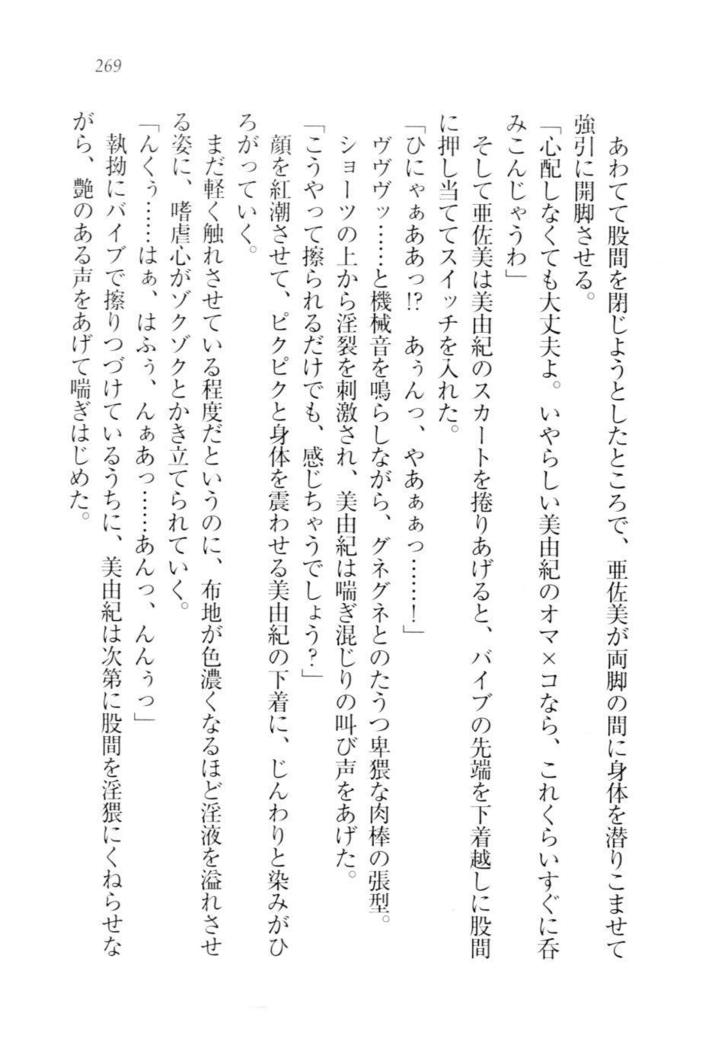 269
あわてて股間を閉じようとしたところで、亜佐美が両脚の間に身体を潜りこませて
強引に開脚させる。
「心配しなくても大丈夫よ。いやらしい美由紀のオマ×コなら、これくらいすぐに呑
みこんじゃうわ」
そして亜佐美は美由紀のスカートを捲りあげると、バイブの先端を下着越しに股間
に押し当ててスイッチを入れた。
「ひにゃぁああっ!?　あぅんっ、やあぁぁっ……！」
ヴヴヴッ……と機械音を鳴らしながら、グネグネとのたうつ卑猥な肉棒の張型。
ショーツの上から淫裂を刺激され、美由紀は喘ぎ混じりの叫び声をあげた。
「こうやって擦られるだけでも、感じちゃうでしょう？」
顔を紅潮させて、ピクピクと身体を震わせる美由紀の下着に、じんわりと染みがひ
ろがっていく。
まだ軽く触れさせている程度だというのに、布地が色濃くなるほど淫液を溢れさせ
る姿に、嗜虐心がゾクゾクとかき立てられていく。
「んくぅ……はぁ、はふぅ、んぁあっ……あんっ、んんぅっ」
執拗にバイブで擦りつづけているうちに、美由紀は次第に股間を淫猥にくねらせな
がら、艶のある声をあげて喘ぎはじめた。